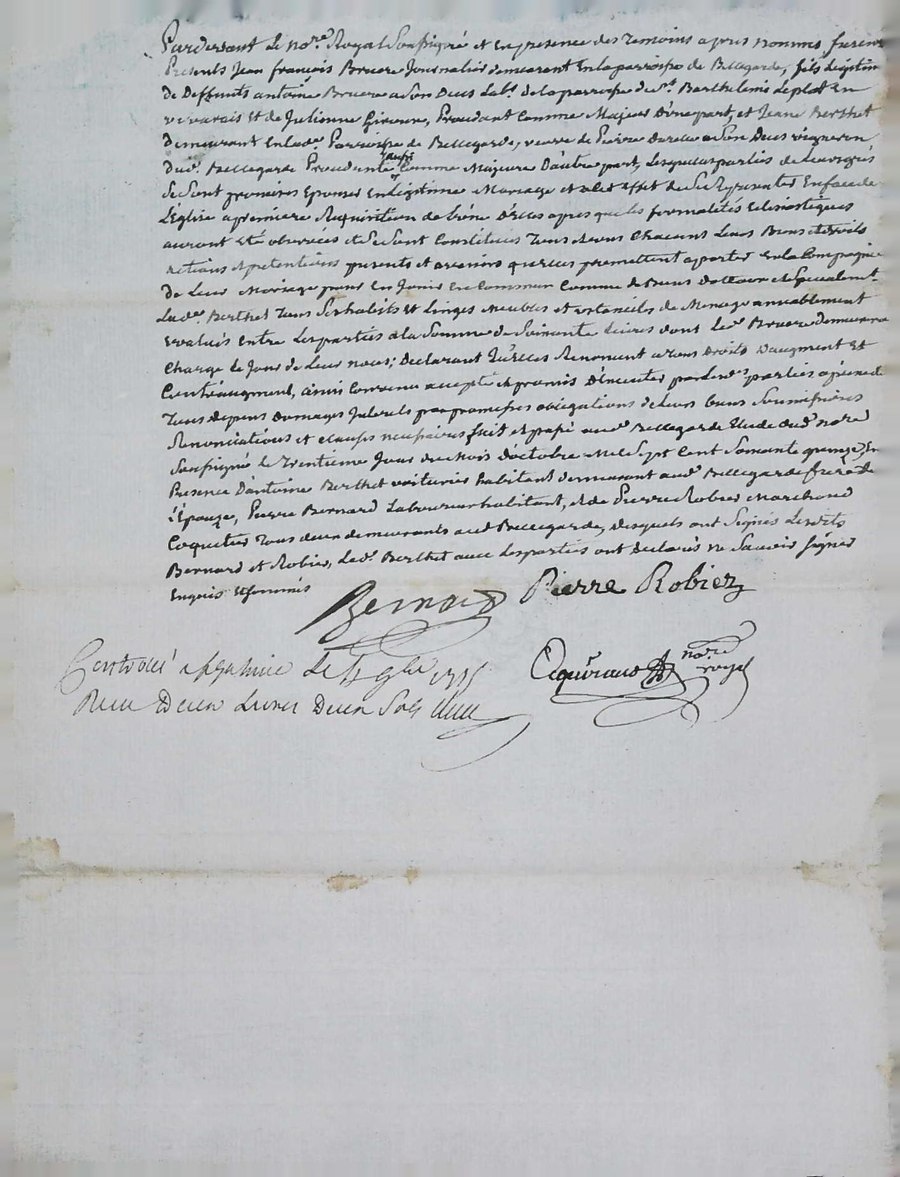 Pardevant Le no.re Royal Soussigné et en presence des temoins apres nommés, furent
Presents Jean françois Bruere Journalier demeurant En la parroisse de Bellegarde, fils Legitime
de Deffunts antoine Bruere a son Deces Lab.r de la parroisse de S.t Barthelemi Leplat En
vivarais Et de Julienne Gironne, Proudant Comme Majeur D'une part, et Jeane Berthet
demeurant En lad.e Parroisse de Bellegarde, veuve de Pierre a son Deces vigneron
dud. Bellegarde Proudante aussi Comme Majeure Dautre part, Lesquelles parties de leurs grés
Se Sont promises Epouser En Legitime Mariage et a cet effet de Se Representer En face de
L'Eglise a premiere Requisition de L'une D'elles apres que les formalités Eclesiastiques
auront Eté observées et Se Sont Constitués Tous deux Chacuns Leurs Biens et droits
actions et pretentions presents et avenirs quelles promettent aporter En la Compagnie
de Leur Mariage pour En Jouir En Commun Comme de Biens et Specialement
Lad.e Berthet Tous Ses habits Et Linges Meubles et Ustenciles de Menage amiablement
Evalués Entre Les parties a la Somme de Soixante Livres dont Led. Bruere demeurera
Chargé Le Jour de Leur noces; Declarant Qu'elles Renoncent a tous Droits D'augment Et
Contréaugment, ainsi Convenu accepté et promis D'executer par Lesd.s parties a peine de
Tous depens Domages Interets par promesses obligations de Leurs biens Soumissions
Renonciations et clauses necessaires fait et passé aud. Bellegarde Etude dud. nore
Soussigné Le Trentieme Jour du Mois d'octobre Mil Sept Cent Soixante quinze, En
Presence D'antoine Berthet voiturier habitant demeurant aud. Bellegarde frere de
L'Epouze, Pierre Bernard Laboureur habitant, et de Pierre Robier Marchand
Coquetier Tous deux demeurants aud Bellegarde, desquels ont Signés Lesdits
Bernard et Robier, Led. Berthet avec Les parties ont declarés ne Savoir Signer
Enquis Et Sommés
Bernard Pierre Robier
nore royal
Controlé Le
Recu Deux Livres Deux Sols